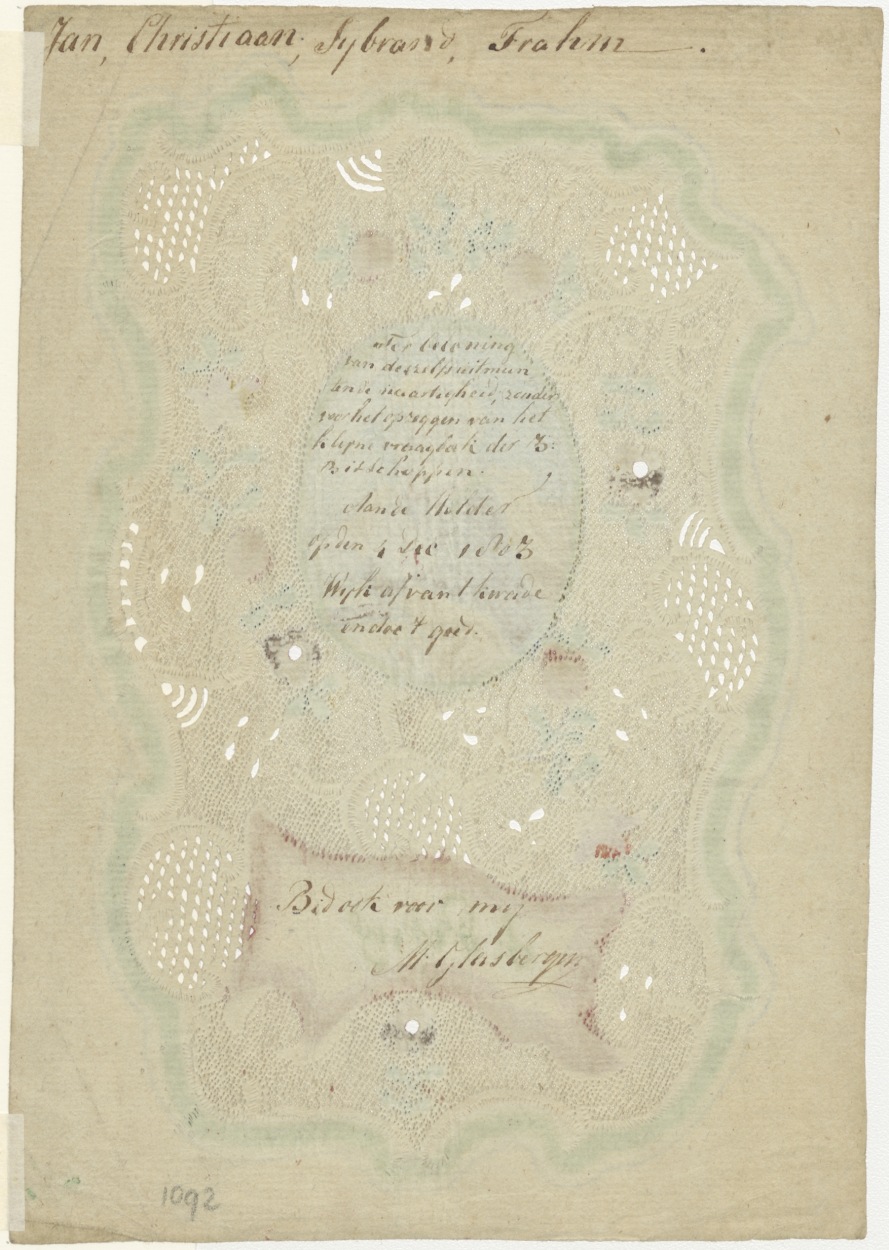 Jan, Christiaan; Sybrand, Frahm.
Ter belooning
van deszelfs uitmun
tende naarstigheid, zonder
voor het opzeggen van het
kleyne vraagboek der 3:
Bisschoppen.
Aan de Helder
op den 4 Dec 1803
Wyk af van t kwade
en doe t goed.
Bid ook voor my
M. Glasbergen
1092